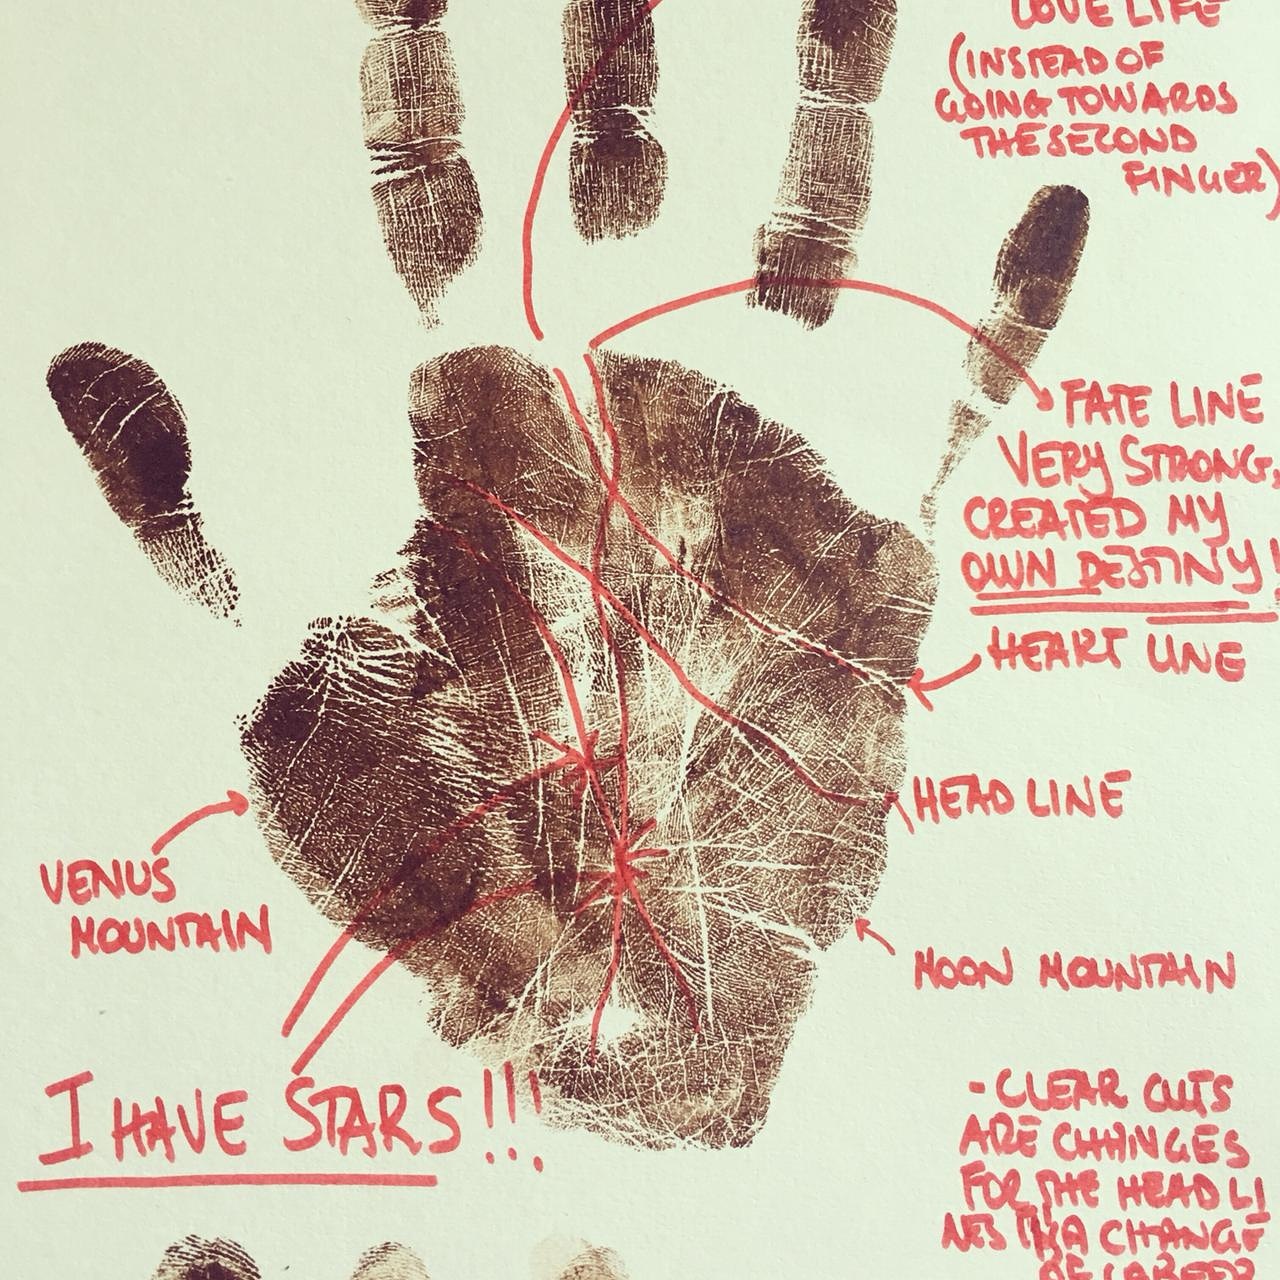 LOVE LIFE
(INSTEAD OF
GOING TOWARDS
THE SECOND
FINGER)
FATE LINE
VERY STRONG,
CREATED MY
OWN DESTINY!
HEART LINE
HEAD LINE
VENUS
MOUNTAIN
MOON MOUNTAIN
I HAVE STARS!!!
- CLEAR CUTS
ARE CHANGES
FOR THE HEAD LI
NES A CHANGE
OF CAREER